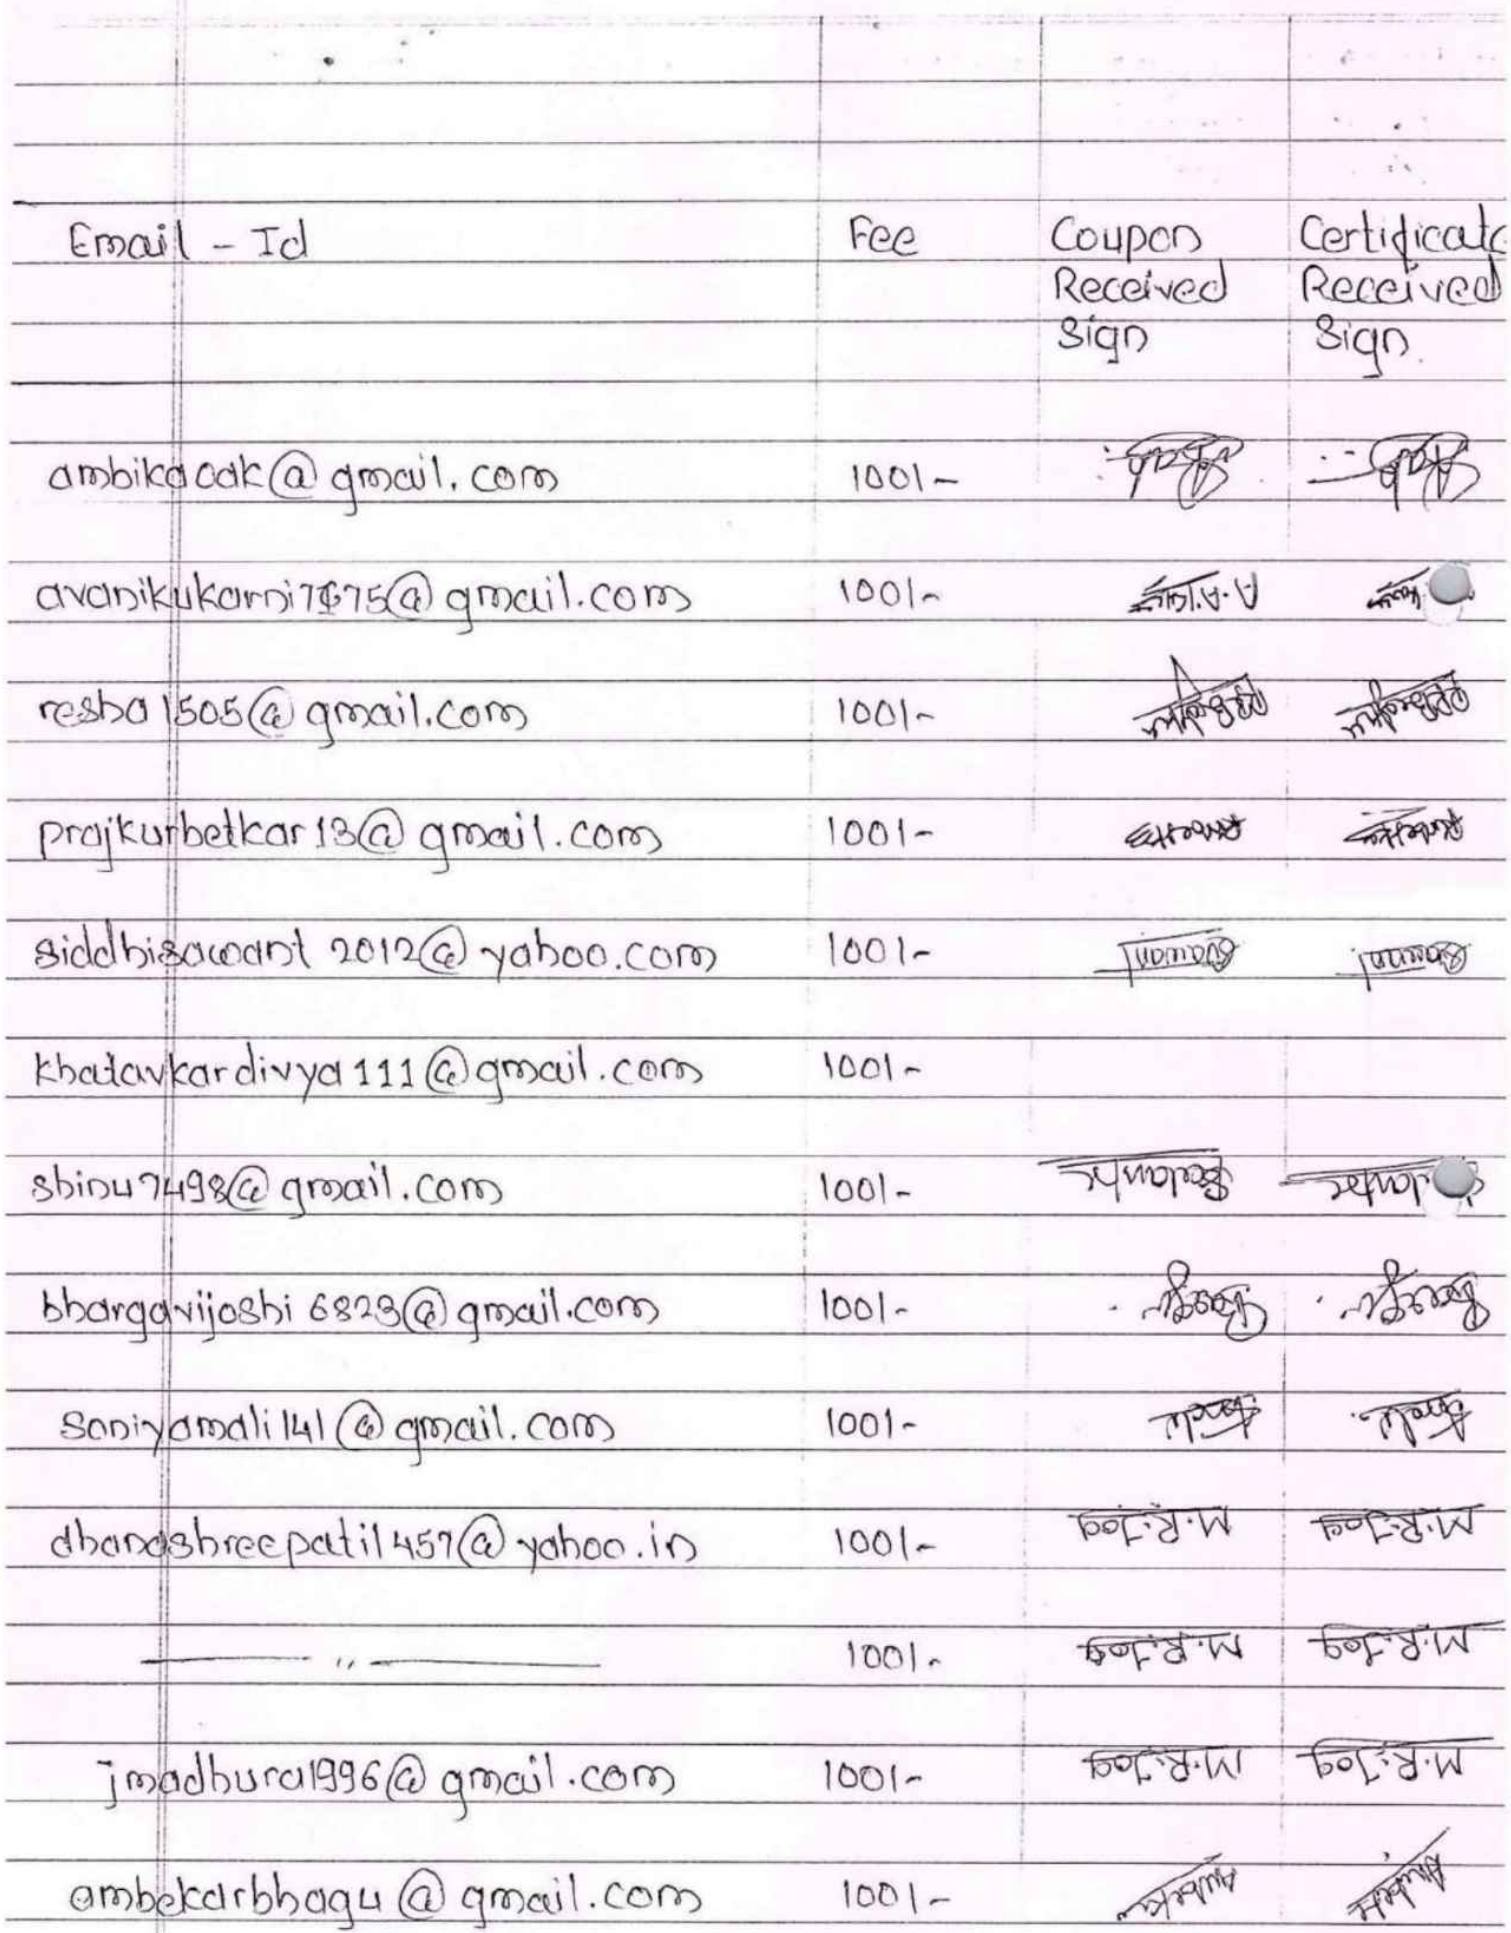 Email - Id Fee Coupon Certificate
Received Received
Sign Sign.
ambikaoak@gmail.com 1001-
avanikukarni7675@gmail.com 1001- A.A.
resha1505@gmail.com 1001-
prajkurbetkar13@gmail.com 1001-
siddhisawant2012@yahoo.com 1001- Sawant Sawant
khatavkardivya111@gmail.com 1001-
shinu7498@gmail.com 1001-
bhargavijoshi6823@gmail.com 1001-
saniyamali141@gmail.com 1001-
dhanashreepatil457@yahoo.in 1001- M.R.Jog M.R.Jog
— " — 1001- M.R.Jog M.R.Jog
jmadhura1996@gmail.com 1001- M.R.Jog M.R.Jog
ambekarbhagu@gmail.com 1001-